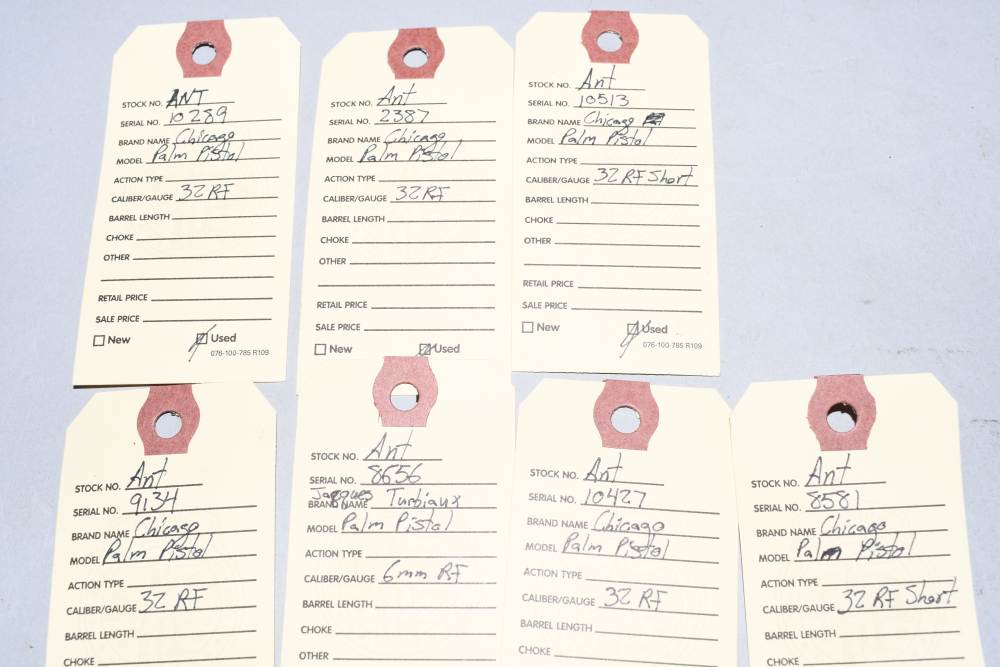 STOCK NO. ANT
SERIAL NO. 10289
BRAND NAME Chicago
MODEL Palm Pistol
ACTION TYPE
CALIBER/GAUGE 32 RF
BARREL LENGTH
CHOKE
OTHER
RETAIL PRICE
SALE PRICE
New Used
076-100-785 R109
STOCK NO. Ant
SERIAL NO. 2387
BRAND NAME Chicago
MODEL Palm Pistol
ACTION TYPE
CALIBER/GAUGE 32 RF
BARREL LENGTH
CHOKE
OTHER
RETAIL PRICE
SALE PRICE
New Used
STOCK NO. Ant
SERIAL NO. 10513
BRAND NAME Chicago
MODEL Palm Pistol
ACTION TYPE
CALIBER/GAUGE 32 RF Short
BARREL LENGTH
CHOKE
OTHER
RETAIL PRICE
SALE PRICE
New Used
076-100-785 R109
STOCK NO. Ant
SERIAL NO. 9134
BRAND NAME Chicago
MODEL Palm Pistol
ACTION TYPE
CALIBER/GAUGE 32 RF
BARREL LENGTH
CHOKE
STOCK NO. Ant
SERIAL NO. 8656
BRAND NAME Jacques Turbiaux
MODEL Palm Pistol
ACTION TYPE
CALIBER/GAUGE 6mm RF
BARREL LENGTH
CHOKE
OTHER
STOCK NO. Ant
SERIAL NO. 10427
BRAND NAME Chicago
MODEL Palm Pistol
ACTION TYPE
CALIBER/GAUGE 32 RF
BARREL LENGTH
CHOKE
STOCK NO. Ant
SERIAL NO. 8581
BRAND NAME Chicago
MODEL Palm Pistol
ACTION TYPE
CALIBER/GAUGE 32 RF Short
BARREL LENGTH
CHOKE